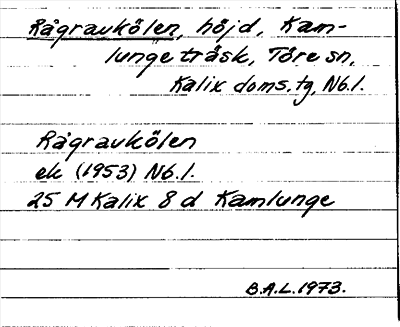 Rågravkölen, höjd, Kam-
lunge träsk, Töre sn,
Kalix doms. tg, Nb.l.
Rågravkölen
ek (1953) Nb.l.
25 M Kalix 8 d Kamlunge
B.A.L. 1973.